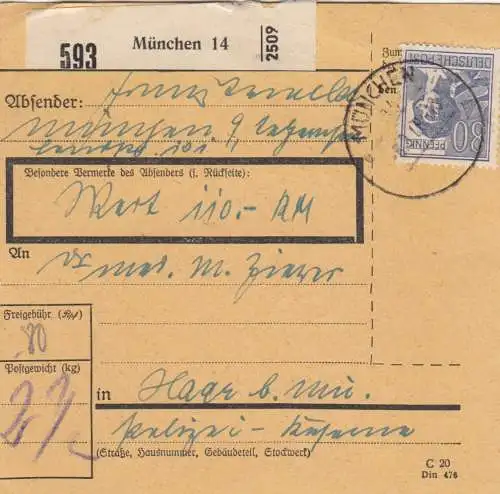 593
München 14
2509
Zum
ben
DEUTSCHE POST
80
PFENNIG
MÜNCHEN
Absender:
München 9,
Besondere Vermerke des Absenders (s. Rückseite):
Wert 110.- RM
An
Dr med. M.
Freigebühr (Rpf)
80
Postgewicht (kg)
in
Haar b. Mü.
Polizei - Kaserne
(Straße, Hausnummer, Gebäudeteil, Stockwerk)
C 20
Din 476